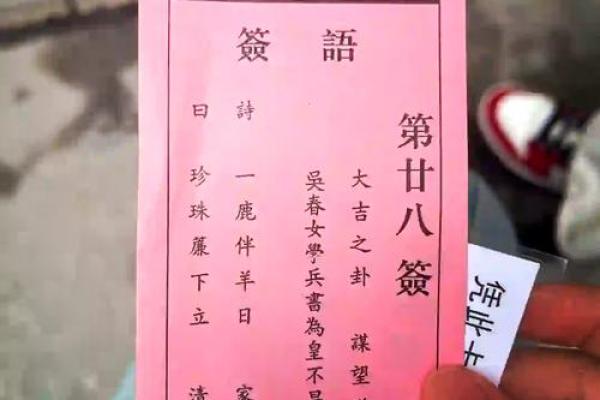 簽語
第廿八簽
大吉之卦 謀望
吳春女學兵書為皇不
詩 一鹿伴羊日 家
曰 珍珠簾下立
凭此